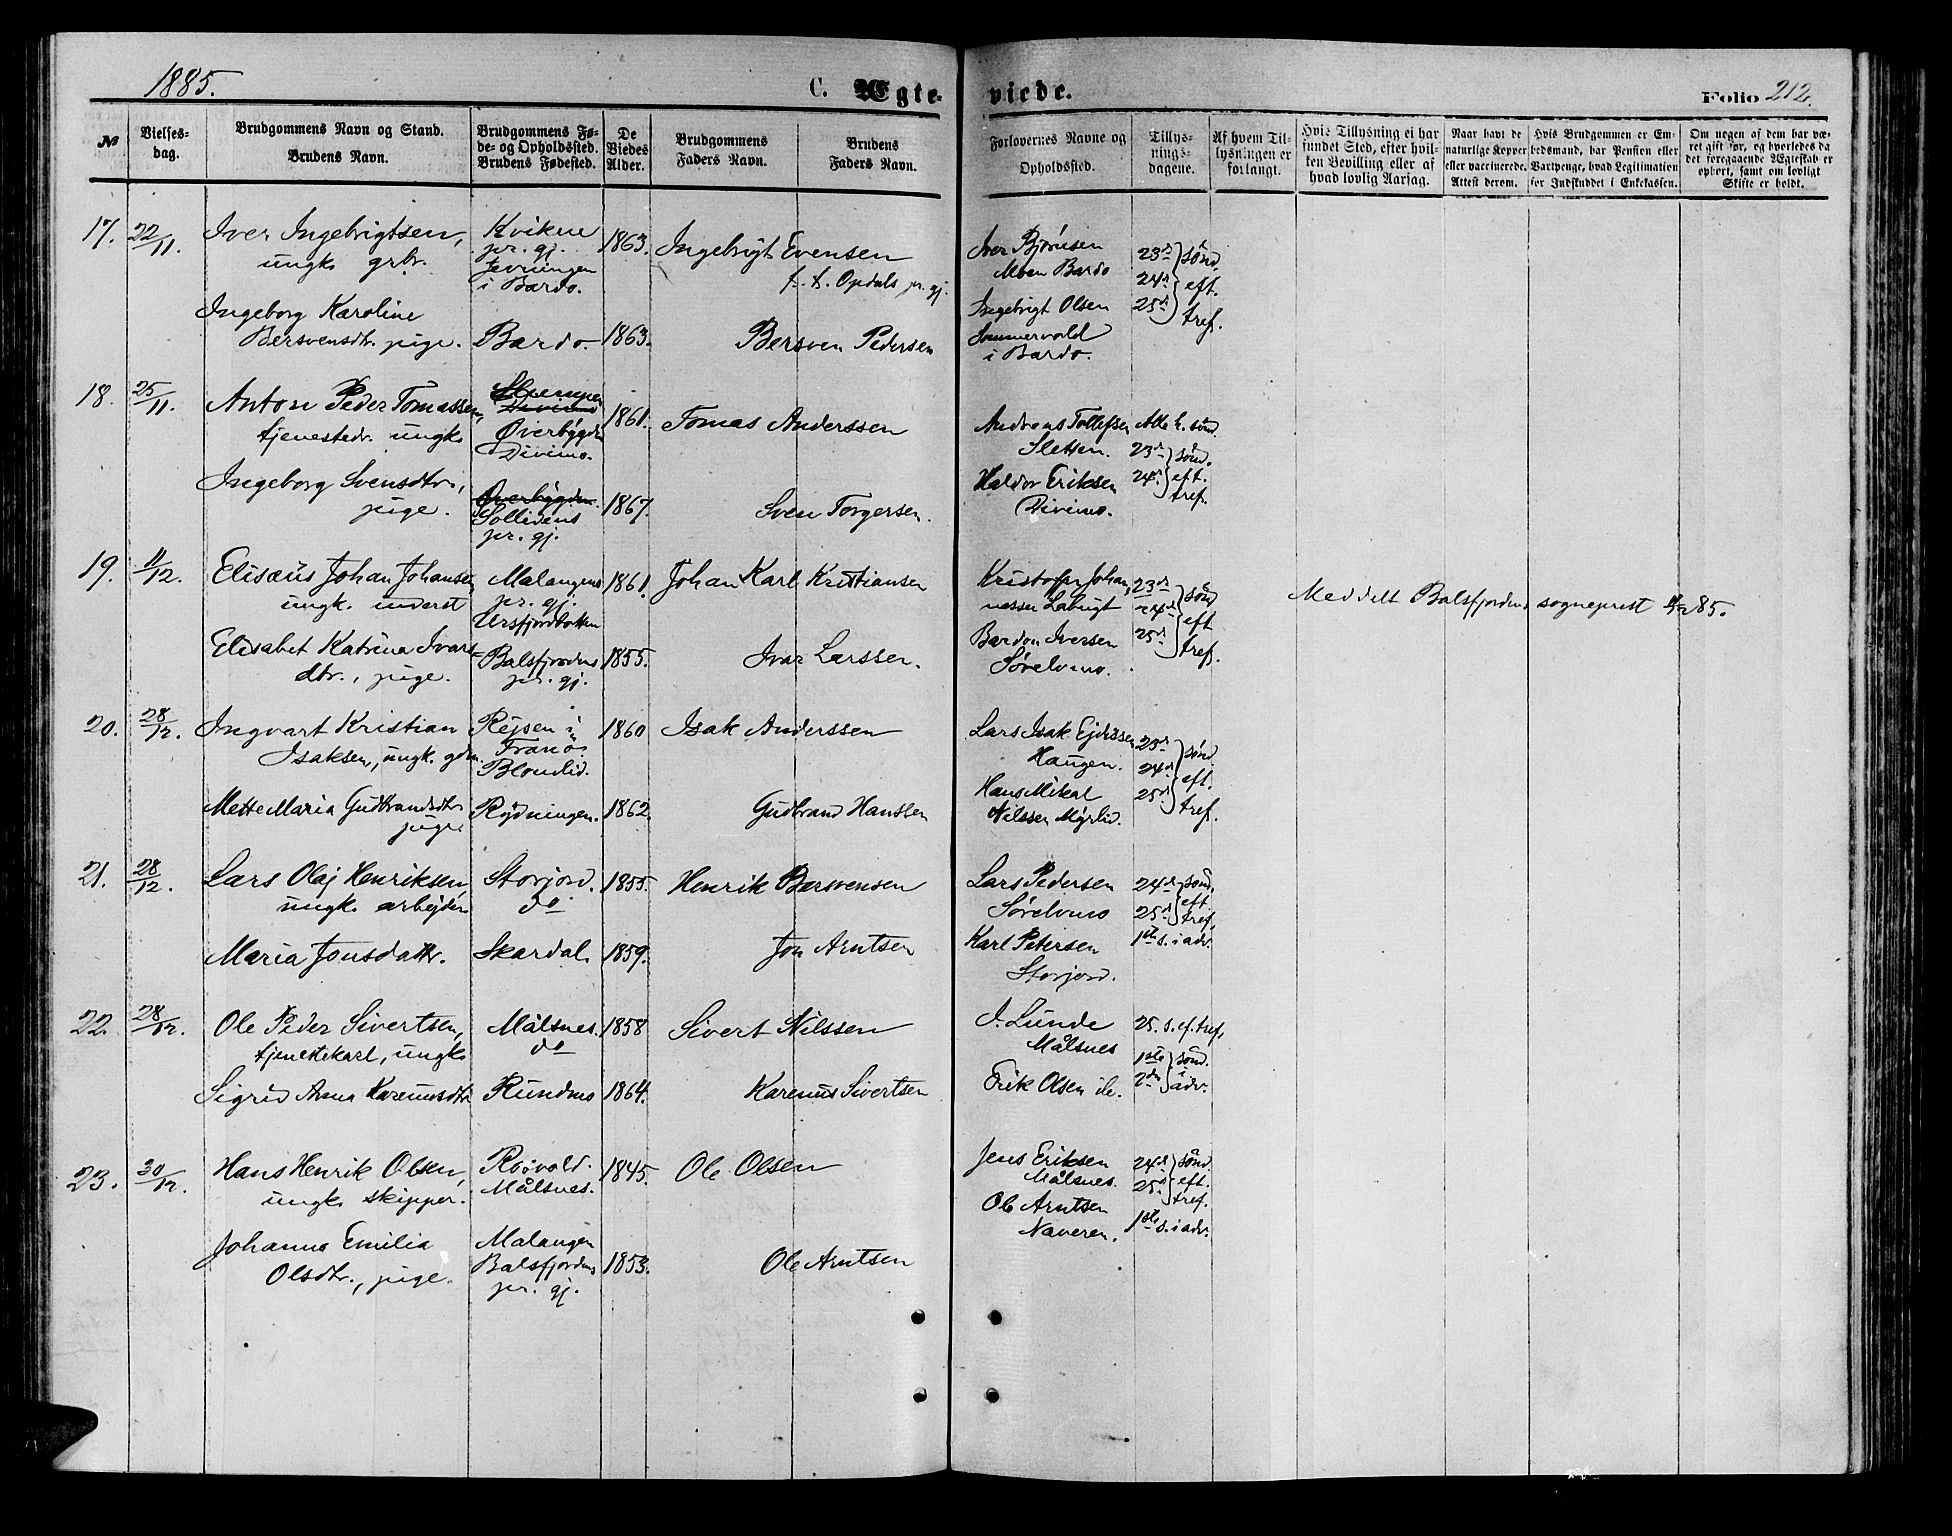 1885.
C. Ægte-
viede.
Folio 212.
№
Vielses-
dag.
Brudgommens Navn og Stand.
Brudens Navn.
Brudgommens Fø-
de- og Opholdssted.
Brudens Fødested.
De
Viedes
Alder.
Brudgommens
Faders Navn.
Brudens
Faders Navn.
Forlovernes Navne og
Opholdssted.
Tillys-
nings-
dagene.
Af hvem Til-
lysningen er
forlangt.
Hvis Tillysning ei har
fundet Sted, efter hvil-
ken Bevilling eller af
hvad lovlig Aarsag.
Naar havt de
naturlige Kopper
eller vaccinerede.
Attest derom.
Hvis Brudgommen er Em-
bedsmand, har Pension eller
Vartpenge, hvad Legitimation
for Indskuddet i Enkekassen.
Om nogen af dem har væ-
ret gift før, og hvorledes da
det foregaaende Ægteskab er
ophørt, samt om lovligt
Skifte er holdt.
17. 22/11. Iver Ingebrigtsen,
ungk. grbr.
Kvikne
pr. gj.
i Bardo.
1863.
Ingebrigt Evensen
f. t. Opdals pr. gj.
Iver Bjørnsen
Moen Bardo
23de
24de
25de
sønd.
eft.
tref.
Ingeborg Karoline
Bersvensdtr. pige.
Bardo.
1863.
Bersven Pedersen
Ingebrigt Olsen
Sommervold
i Bardo.
18. 25/11. Anton Peder Tomassen,
tjenestedr. ungk.
Divimo
Øverbygden
Divimo.
1861.
Tomas Anderssen
Andreas Tollefsen
Sletten.
Alle h. sønd.
23de
24de
sønd.
eft.
tref.
Ingeborg Svensdtr.,
pige.
Øverbygden.
Sollidens
pr. gj.
1867.
Sven Torgersen.
Haldor Eriksen
Divimo.
19. 11/12. Elisæus Johan Johansen,
ungk. inderst
Malangens
pr. gj.
Ursfjordbotten
1861.
Johan Karl Kristiansen
Kristofer Johan-
nessen
23de
24de
25de
sønd
eft
tref.
Meddelt Balsfjordens sogneprest 11/12 85.
Elisabet Katrina Ivars-
dtr., pige.
Balsfjordens
pr. gj.
1855.
Ivar Larssen.
Bardon Iversen
Sørelvmo.
20. 28/12. Ingvart Kristian
Isaksen, ungk. gdm.
Rejsen i
Tranø.
Blomlid.
1860
Isak Anderssen
Lars Isak
Haugen.
23de
24de
25de
sønd
eft.
tref.
Mette Maria Gudbrandsdtr.
pige.
Rydningen.
1862.
Gudbrand Hanssen
Hans Mikal
Nilssen Myrlid.
21. 28/12. Lars Olaj Henriksen,
ungk. arbejder
Storjord.
do
1855.
Henrik Bersvensen
Lars Pedersen
Sørelvmo
24de
25de
sønd.
eft.
tref.
1ste s. i adv.
Maria Jonsdattr.
Skardal.
1859.
Jon Arntsen
Karl Petersen
Storjord.
22. 28/12. Ole Peder Sivertsen,
tjenestekarl, ungk.
Målsnes.
do
1858
Sivert Nilssen
J. Lunde
Målsnes
25. s. ef. tref.
1ste
2den
sønd.
i
adv.
Sigrid Anna Karenusdtr.
Rundmo
1864.
Karenus Sivertsen
Erik Olsen
23. 30/12. Hans Henrik Olsen,
ungk. skipper.
Målsnes.
1845.
Ole Olsen
Jens Eriksen
Målsnes.
24de
25de
sønd.
eft.
tref.
1ste s. i adv.
Johanna Emilia
Olsdtr., pige.
Malangen
Balsfjordens
pr. gj.
1853.
Ole Arntsen
Ole Arntsen
Naveren.